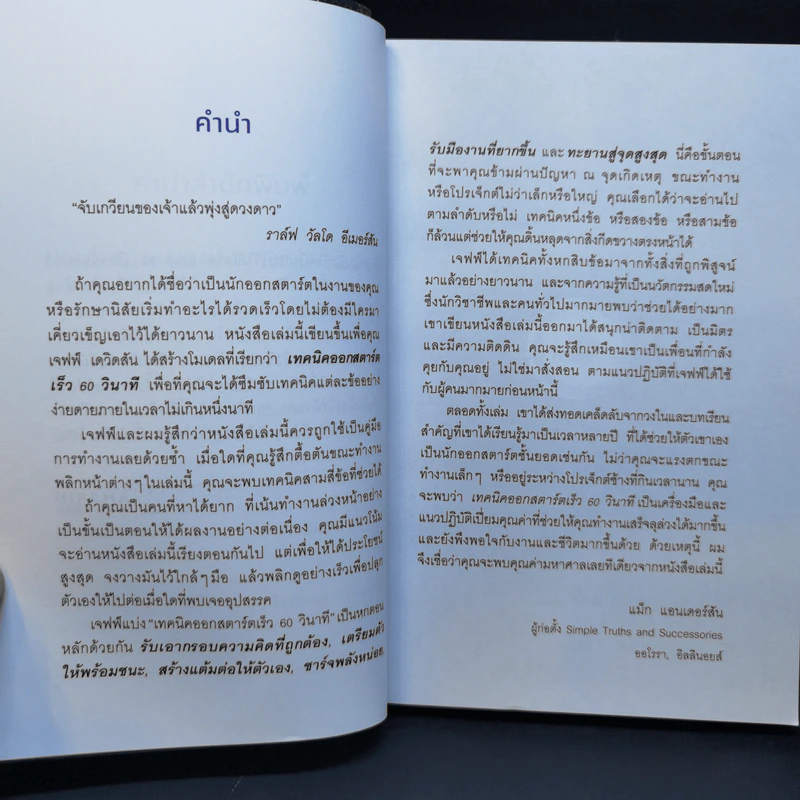 คำนำ
“จับเกวียนของเจ้าแล้วพุ่งสู่ดวงดาว”
ราล์ฟ วัลโด อีเมอร์สัน
ถ้าคุณอยากได้ชื่อว่าเป็นนักออกสตาร์ตในงานของคุณ
หรือรักษานิสัยเริ่มทำอะไรได้รวดเร็วโดยไม่ต้องมีใครมา
เคี่ยวเข็ญเอาไว้ได้ยาวนาน หนังสือเล่มนี้เขียนขึ้นเพื่อคุณ
เจฟฟ์ เดวิดสัน ได้สร้างโมเดลที่เรียกว่า เทคนิคออกสตาร์ต
เร็ว 60 วินาที เพื่อที่คุณจะได้ซึมซับเทคนิคแต่ละข้ออย่าง
ง่ายดายภายในเวลาไม่เกินหนึ่งนาที
เจฟฟ์และผมรู้สึกว่าหนังสือเล่มนี้ควรถูกใช้เป็นคู่มือ
การทำงานเลยด้วยซ้ำ เมื่อใดที่คุณรู้สึกตื้อตันขณะทำงาน
พลิกหน้าต่างๆ ในเล่มนี้ คุณจะพบเทคนิคสามสี่ข้อที่ช่วยได้
ถ้าคุณเป็นคนที่หาได้ยาก ที่เน้นทำงานล่วงหน้าอย่าง
เป็นขั้นเป็นตอนให้ได้ผลงานอย่างต่อเนื่อง คุณมีแนวโน้ม
จะอ่านหนังสือเล่มนี้เรียงตอนกันไป แต่เพื่อให้ได้ประโยชน์
สูงสุด จงวางมันไว้ใกล้ๆ มือ แล้วพลิกดูอย่างเร็วเพื่อปลุก
ตัวเองให้ไปต่อเมื่อใดที่พบเจออุปสรรค
เจฟฟ์แบ่ง “เทคนิคออกสตาร์ตเร็ว 60 วินาที” เป็นหกตอน
หลักด้วยกัน รับเอากรอบความคิดที่ถูกต้อง, เตรียมตัว
ให้พร้อมชนะ, สร้างแต้มต่อให้ตัวเอง, ชาร์จพลังหน่อย,
รับมืองานที่ยากขึ้น และ ทะยานสู่จุดสูงสุด นี่คือขั้นตอน
ที่จะพาคุณข้ามผ่านปัญหา ณ จุดเกิดเหตุ ขณะทำงาน
หรือโปรเจ็กต์ไม่ว่าเล็กหรือใหญ่ คุณเลือกได้ว่าจะอ่านไป
ตามลำดับหรือไม่ เทคนิคหนึ่งข้อ หรือสองข้อ หรือสามข้อ
ก็ล้วนแต่ช่วยให้คุณดิ้นหลุดจากสิ่งกีดขวางตรงหน้าได้
เจฟฟ์ได้เทคนิคทั้งหกสิบข้อมาจากทั้งสิ่งที่ถูกพิสูจน์
มาแล้วอย่างยาวนาน และจากความรู้ที่เป็นนวัตกรรมสดใหม่
ซึ่งนักวิชาชีพและคนทั่วไปมากมายพบว่าช่วยได้อย่างมาก
เขาเขียนหนังสือเล่มนี้ออกมาได้สนุกน่าติดตาม เป็นมิตร
และมีความติดดิน คุณจะรู้สึกเหมือนเขาเป็นเพื่อนที่กำลัง
คุยกับคุณอยู่ ไม่ใช่มาสั่งสอน ตามแนวปฏิบัติที่เจฟฟ์ได้ใช้
กับผู้คนมากมายก่อนหน้านี้
ตลอดทั้งเล่ม เขาได้ส่งทอดเคล็ดลับจากวงในและบทเรียน
สำคัญที่เขาได้เรียนรู้มาเป็นเวลาหลายปี ที่ได้ช่วยให้ตัวเขาเอง
เป็นนักออกสตาร์ตชั้นยอดเช่นกัน ไม่ว่าคุณจะแรงตกขณะ
ทำงานเล็กๆ หรืออยู่ระหว่างโปรเจ็กต์ช้างที่กินเวลานาน คุณ
จะพบว่า เทคนิคออกสตาร์ตเร็ว 60 วินาที เป็นเครื่องมือและ
แนวปฏิบัติเปี่ยมคุณค่าที่ช่วยให้คุณทำงานเสร็จลุล่วงได้มากขึ้น
และยังพึงพอใจกับงานและชีวิตมากขึ้นด้วย ด้วยเหตุนี้ ผม
จึงเชื่อว่าคุณจะพบคุณค่ามหาศาลเลยทีเดียวจากหนังสือเล่มนี้
แม็ก แอนเดอร์สัน
ผู้ก่อตั้ง Simple Truths and Successories
ออโรรา, อิลลินอยส์